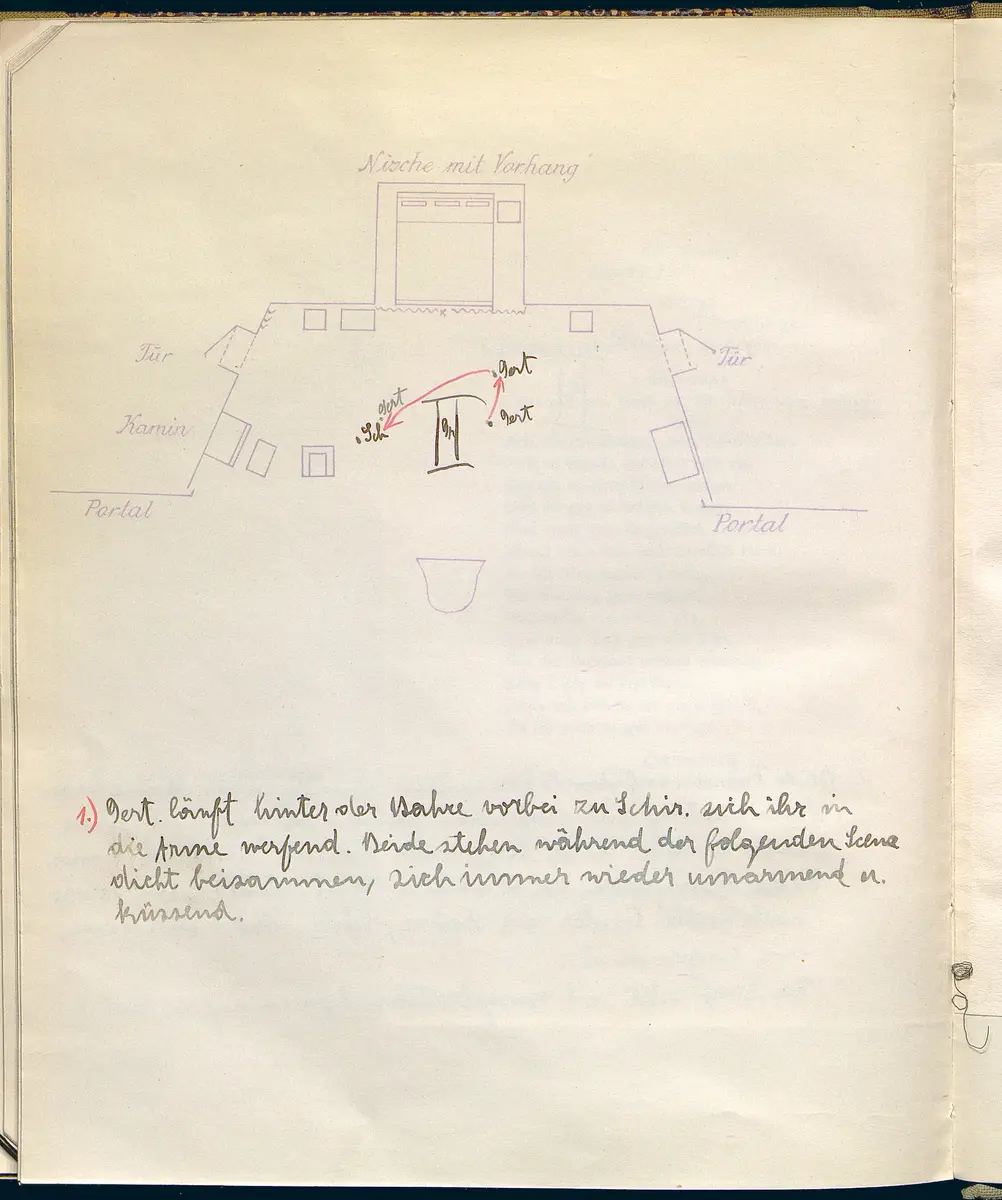 Nische mit Vorhang
Tür
Tür
Gert
Gert
Sch
Gr
Gert
Kamin
Portal
Portal
1.) Gert. läuft hinter der Bahre vorbei zu Schir. sich ihr in
die Arme werfend. Beide stehen während der folgenden Scene
dicht beisammen, sich immer wieder umarmend u.
küssend.